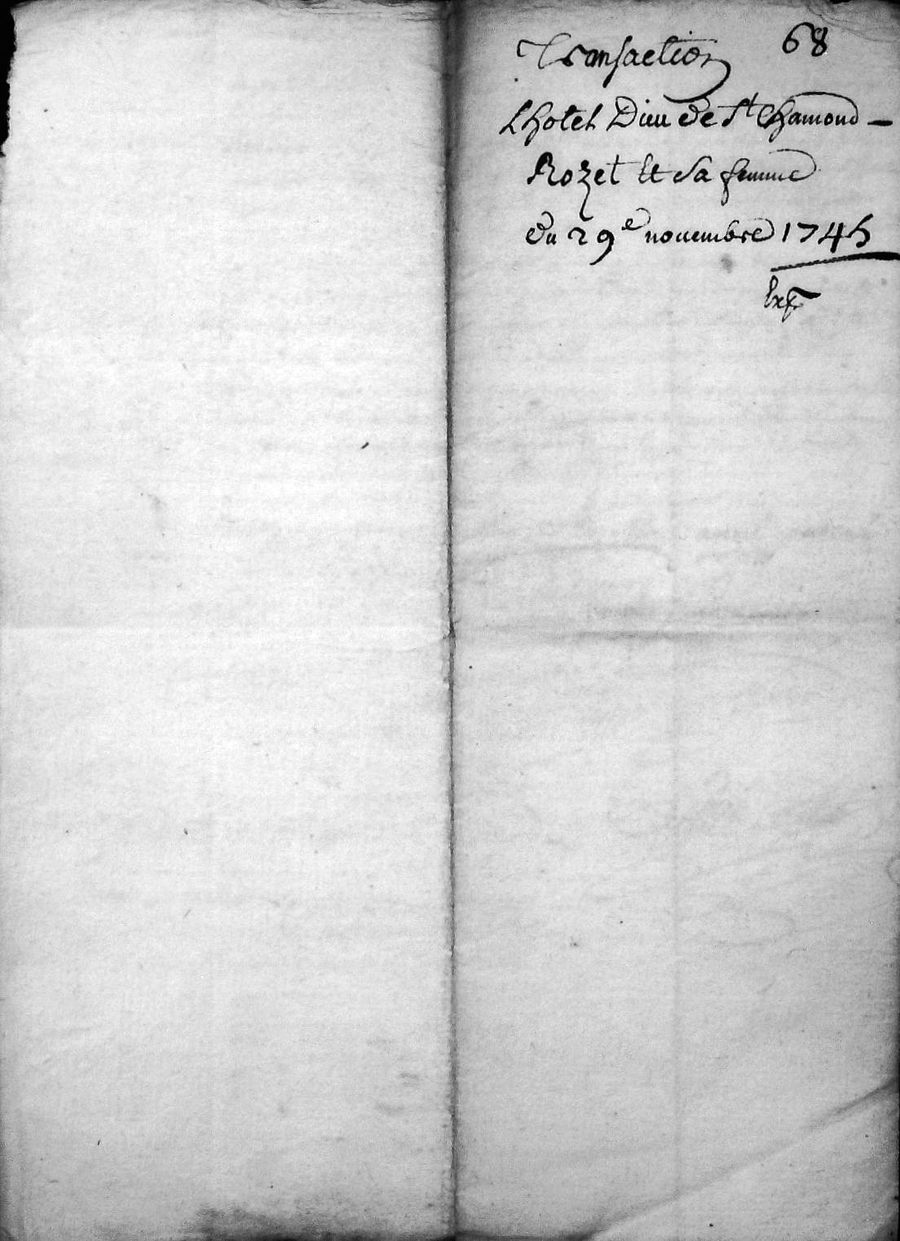 68
Transaction
Lhotel Dieu de St Chamond
Rozet Et sa femme
Du 29e novembre 1745